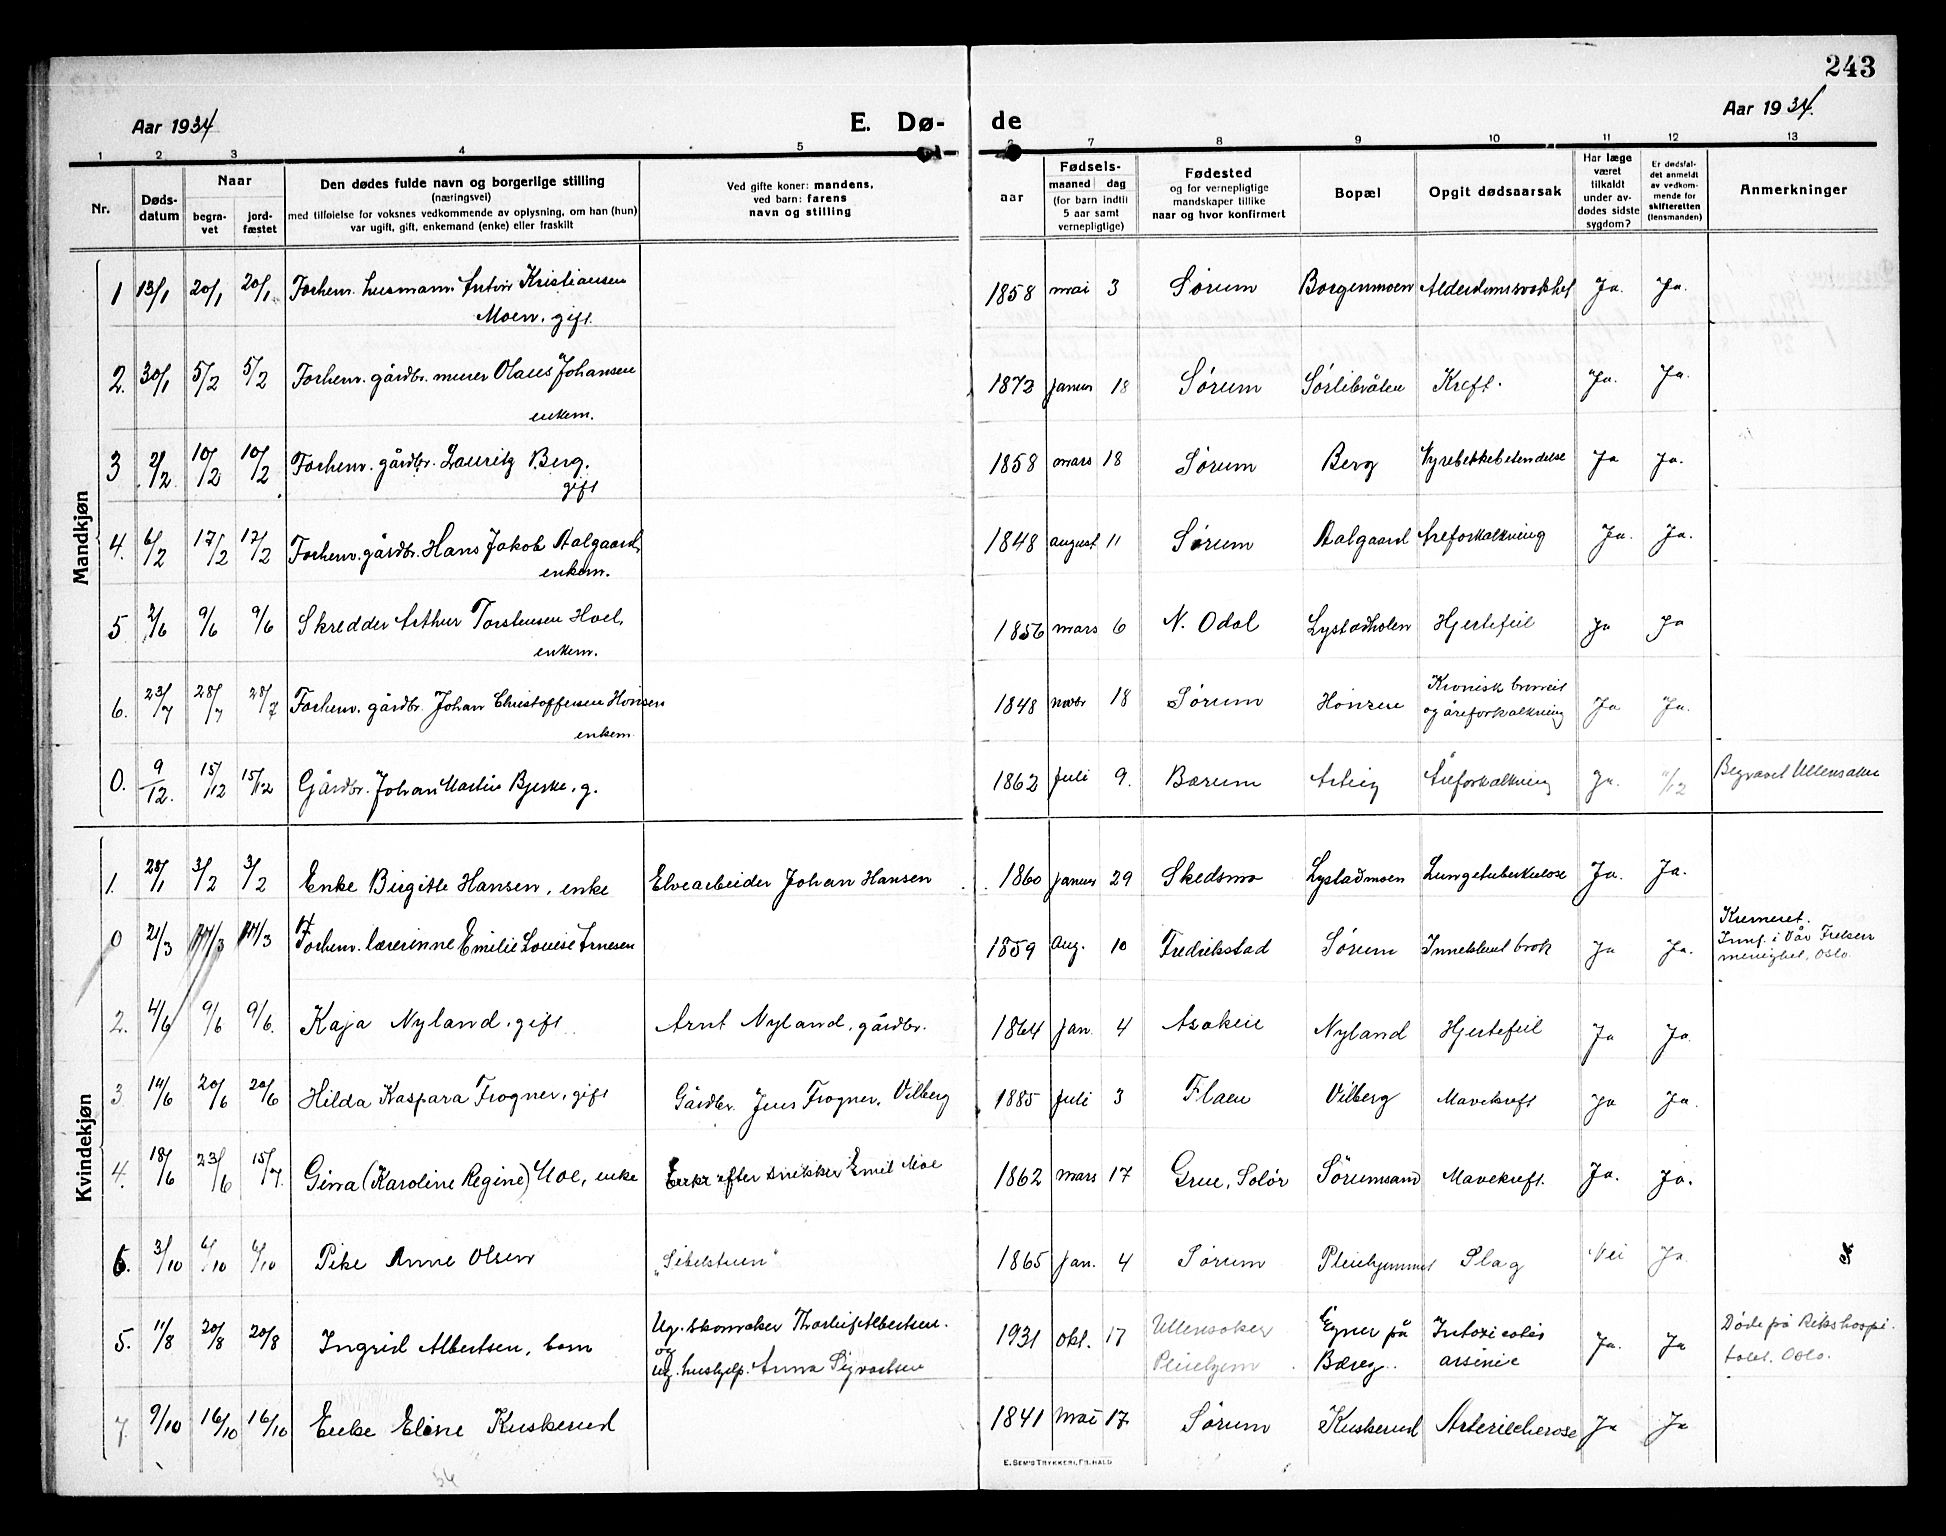 243
Aar 1934
E. Dø-
de
Aar 1934.
1 2 3 4 5 6 7 8 9 10 11 12 13
Nr.
Døds-
datum
Naar
begra-
vet
jord-
fæstet
Den dødes fulde navn og borgerlige stilling
(næringsvei)
med tilføielse for voksnes vedkommende av oplysning, om han (hun)
var ugift, gift, enkemand (enke) eller fraskilt
Ved gifte koner: mandens,
ved barn: farens
navn og stilling
aar
Fødsels-
maaned dag
(for barn indtil
5 aar samt
vernepligtige)
Fødested
og for vernepligtige
mandskaper tillike
naar og hvor konfirmert
Bopæl
Opgit dødsaarsak
Har læge
været
tilkaldt
under av-
dødes sidste
sygdom?
Er dødsfal-
det anmeldt
av vedkom-
mende for
skifteretten
(lensmanden)
Anmerkninger
Mandkjøn
1 13/1 20/1 20/1 Forhenv. husmann Anton Kristiansen 1858 mai 3 Sørum Borgenmoen Alderdomssvakhet Ja. Ja.
Moen, gift.
2. 30/1 5/2 5/2 Forhenv. gårdbr. murer Olaus Johansen 1872 januar 18 Sørum Kreft. Ja. Ja.
enkem.
3 2/2 10/2 10/2 Forhenv. gårdbr. Lauritz Berg. 1858 mars 18 Sørum Berg Nyrebekkebetendelse Ja Ja.
gift
4. 6/2 17/2 17/2 Forhenv. gårdbr. Hans Jakob Aalgaard, 1848 august 11 Sørum Aalgaard Åreforkalkning Ja. Ja.
enkem.
5 2/6 9/6 9/6 Skredder Arthur Torstensen Hoel, 1856 mars 6 N. Odal Lystadholen Hjertefeil Ja Ja
enkem.
6. 23/7 28/7 28/7 Forhenv. gårdbr. Johan Christoffersen Honsen 1848 novbr 18 Sørum Honsen Kronisk bronkit
og åreforkalkning Ja Ja.
enkem.
0. 9/12. 15/12 15/12 Gårdbr. Johan Martin Bjerke, g. 1862 Juli 9. Bærum Asteig Åreforkalkning Ja. 11/12 Begravet Ullensaker
Kvindekjøn
1. 28/1 3/2 3/2 Enke Birgitte Hansen, enke Elvearbeider Johan Hansen 1860 januar 29 Skedsmo Lystadmoen Lungetuberkulose Ja. Ja.
0 21/3 Forhenv. lærerinne Emilie Louise Arnesen 1859 Aug. 10 Fredrikstad Sørum Inneklemt brok Ja Ja. Kremeret.
Innf. i Vår Frelsers
menighet, Oslo.
2. 4/6 9/6 9/6. Kaja Nyland, gift Arnt Nyland, gårdbr. 1864 jan. 4 Asakeie Nyland Hjertefeil Ja Ja.
3 14/6 20/6 20/6 Hilda Kaspara Trogner, gift Gårdbr. Jens Trogner, Vilberg 1885 juli 3 Flaen Vilberg Mavekreft Ja Ja.
4. 18/6 23/6 15/7. Gina (Karoline Regine) Moe, enke Enke efter snekker Emil Moe 1862 mars 17 Grue, Solør Sørumsand Mavekreft. Ja. Ja.
6. 3/10 6/10 6/10 Pike Anne Olsen „Sibelstuen" 1865 Jan. 4 Sørum Pleiehjemmet Slag Nei Ja
5. 11/8 20/8 20/8 Ingrid Albertsen, barn Ug. skomaker Thorleif Albertsen.
og
ug. hushjelp. Anna Sigvartsen 1931 okt. 17 Ullensaker
Pleiehjem Egner på
Bæreg.. Intoxicatio
arsinic Ja. Ja Døde på Rikshospi-
talet. Oslo.
7. 9/10 16/10 16/10 Enke Eline Kuskerud 1841 mai 17. Sørum Kuskerud Ja Ja
E. SEM'S TRYKKERI, FR.HALD